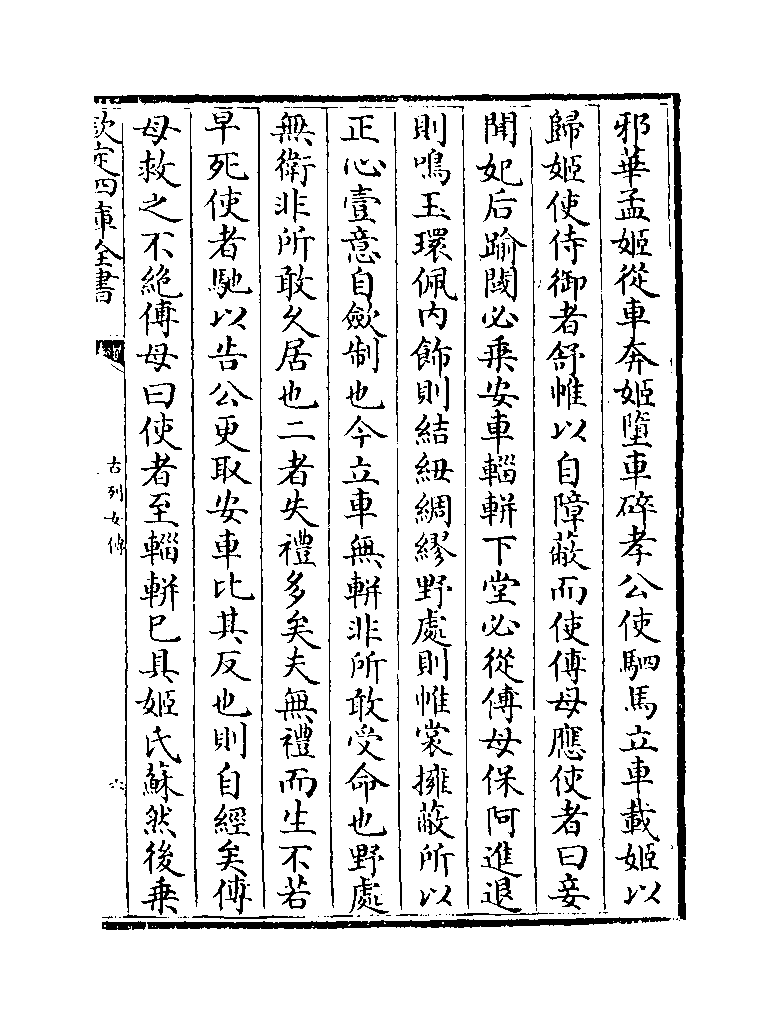 邪華孟姬從車奔姬墮車碎孝公使駟馬立車載姬以
歸姬使侍御者舒帷以自障蔽而使傅母應使者曰妾
聞妃后踰閾必乗安車輜軿下堂必從傅母保阿進退
則鳴玉環佩内飾則結紐綢繆野處則帷裳擁蔽所以
正心壹意自斂制也今立車無軿非所敢受命也野處
無衛非所敢久居也二者失禮多矣夫無禮而生不若
早死使者馳以告公更取安車比其反也則自經矣傅
母救之不絶傅母曰使者至輜軿已具姬氏蘇然後乗
欽定四庫全書
古列女傳
六